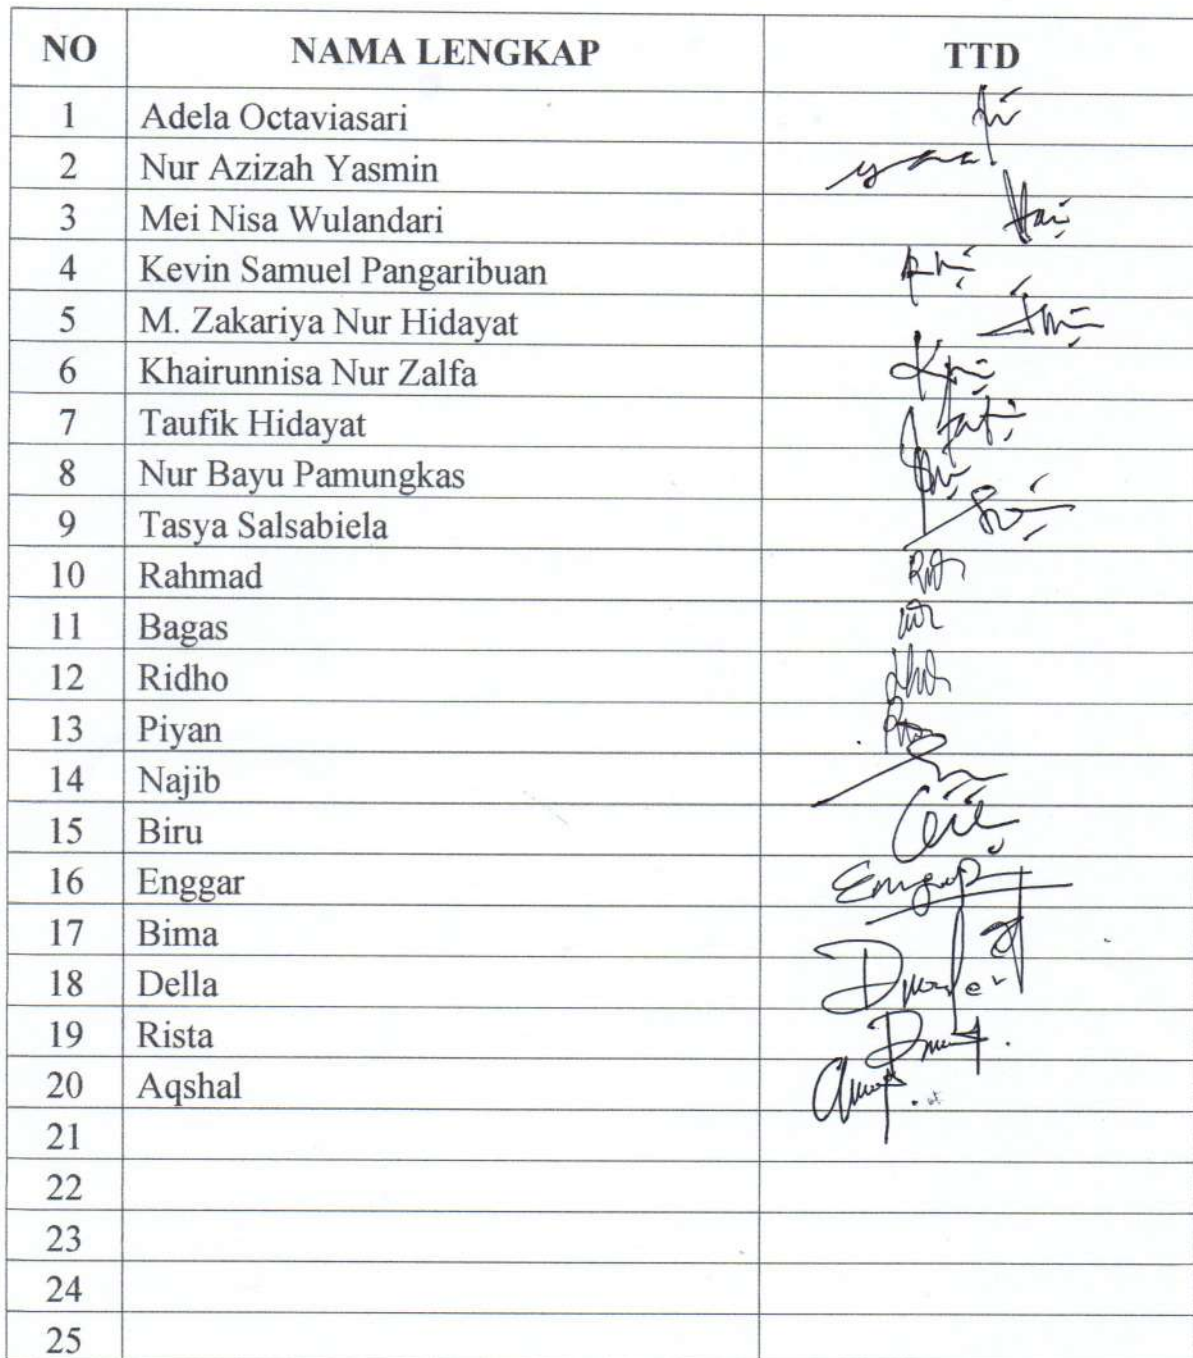 NO NAMA LENGKAP TTD
1 Adela Octaviasari
2 Nur Azizah Yasmin
3 Mei Nisa Wulandari
4 Kevin Samuel Pangaribuan
5 M. Zakariya Nur Hidayat
6 Khairunnisa Nur Zalfa
7 Taufik Hidayat
8 Nur Bayu Pamungkas
9 Tasya Salsabiela
10 Rahmad
11 Bagas
12 Ridho
13 Piyan
14 Najib
15 Biru
16 Enggar
17 Bima
18 Della
19 Rista
20 Aqshal
21
22
23
24
25